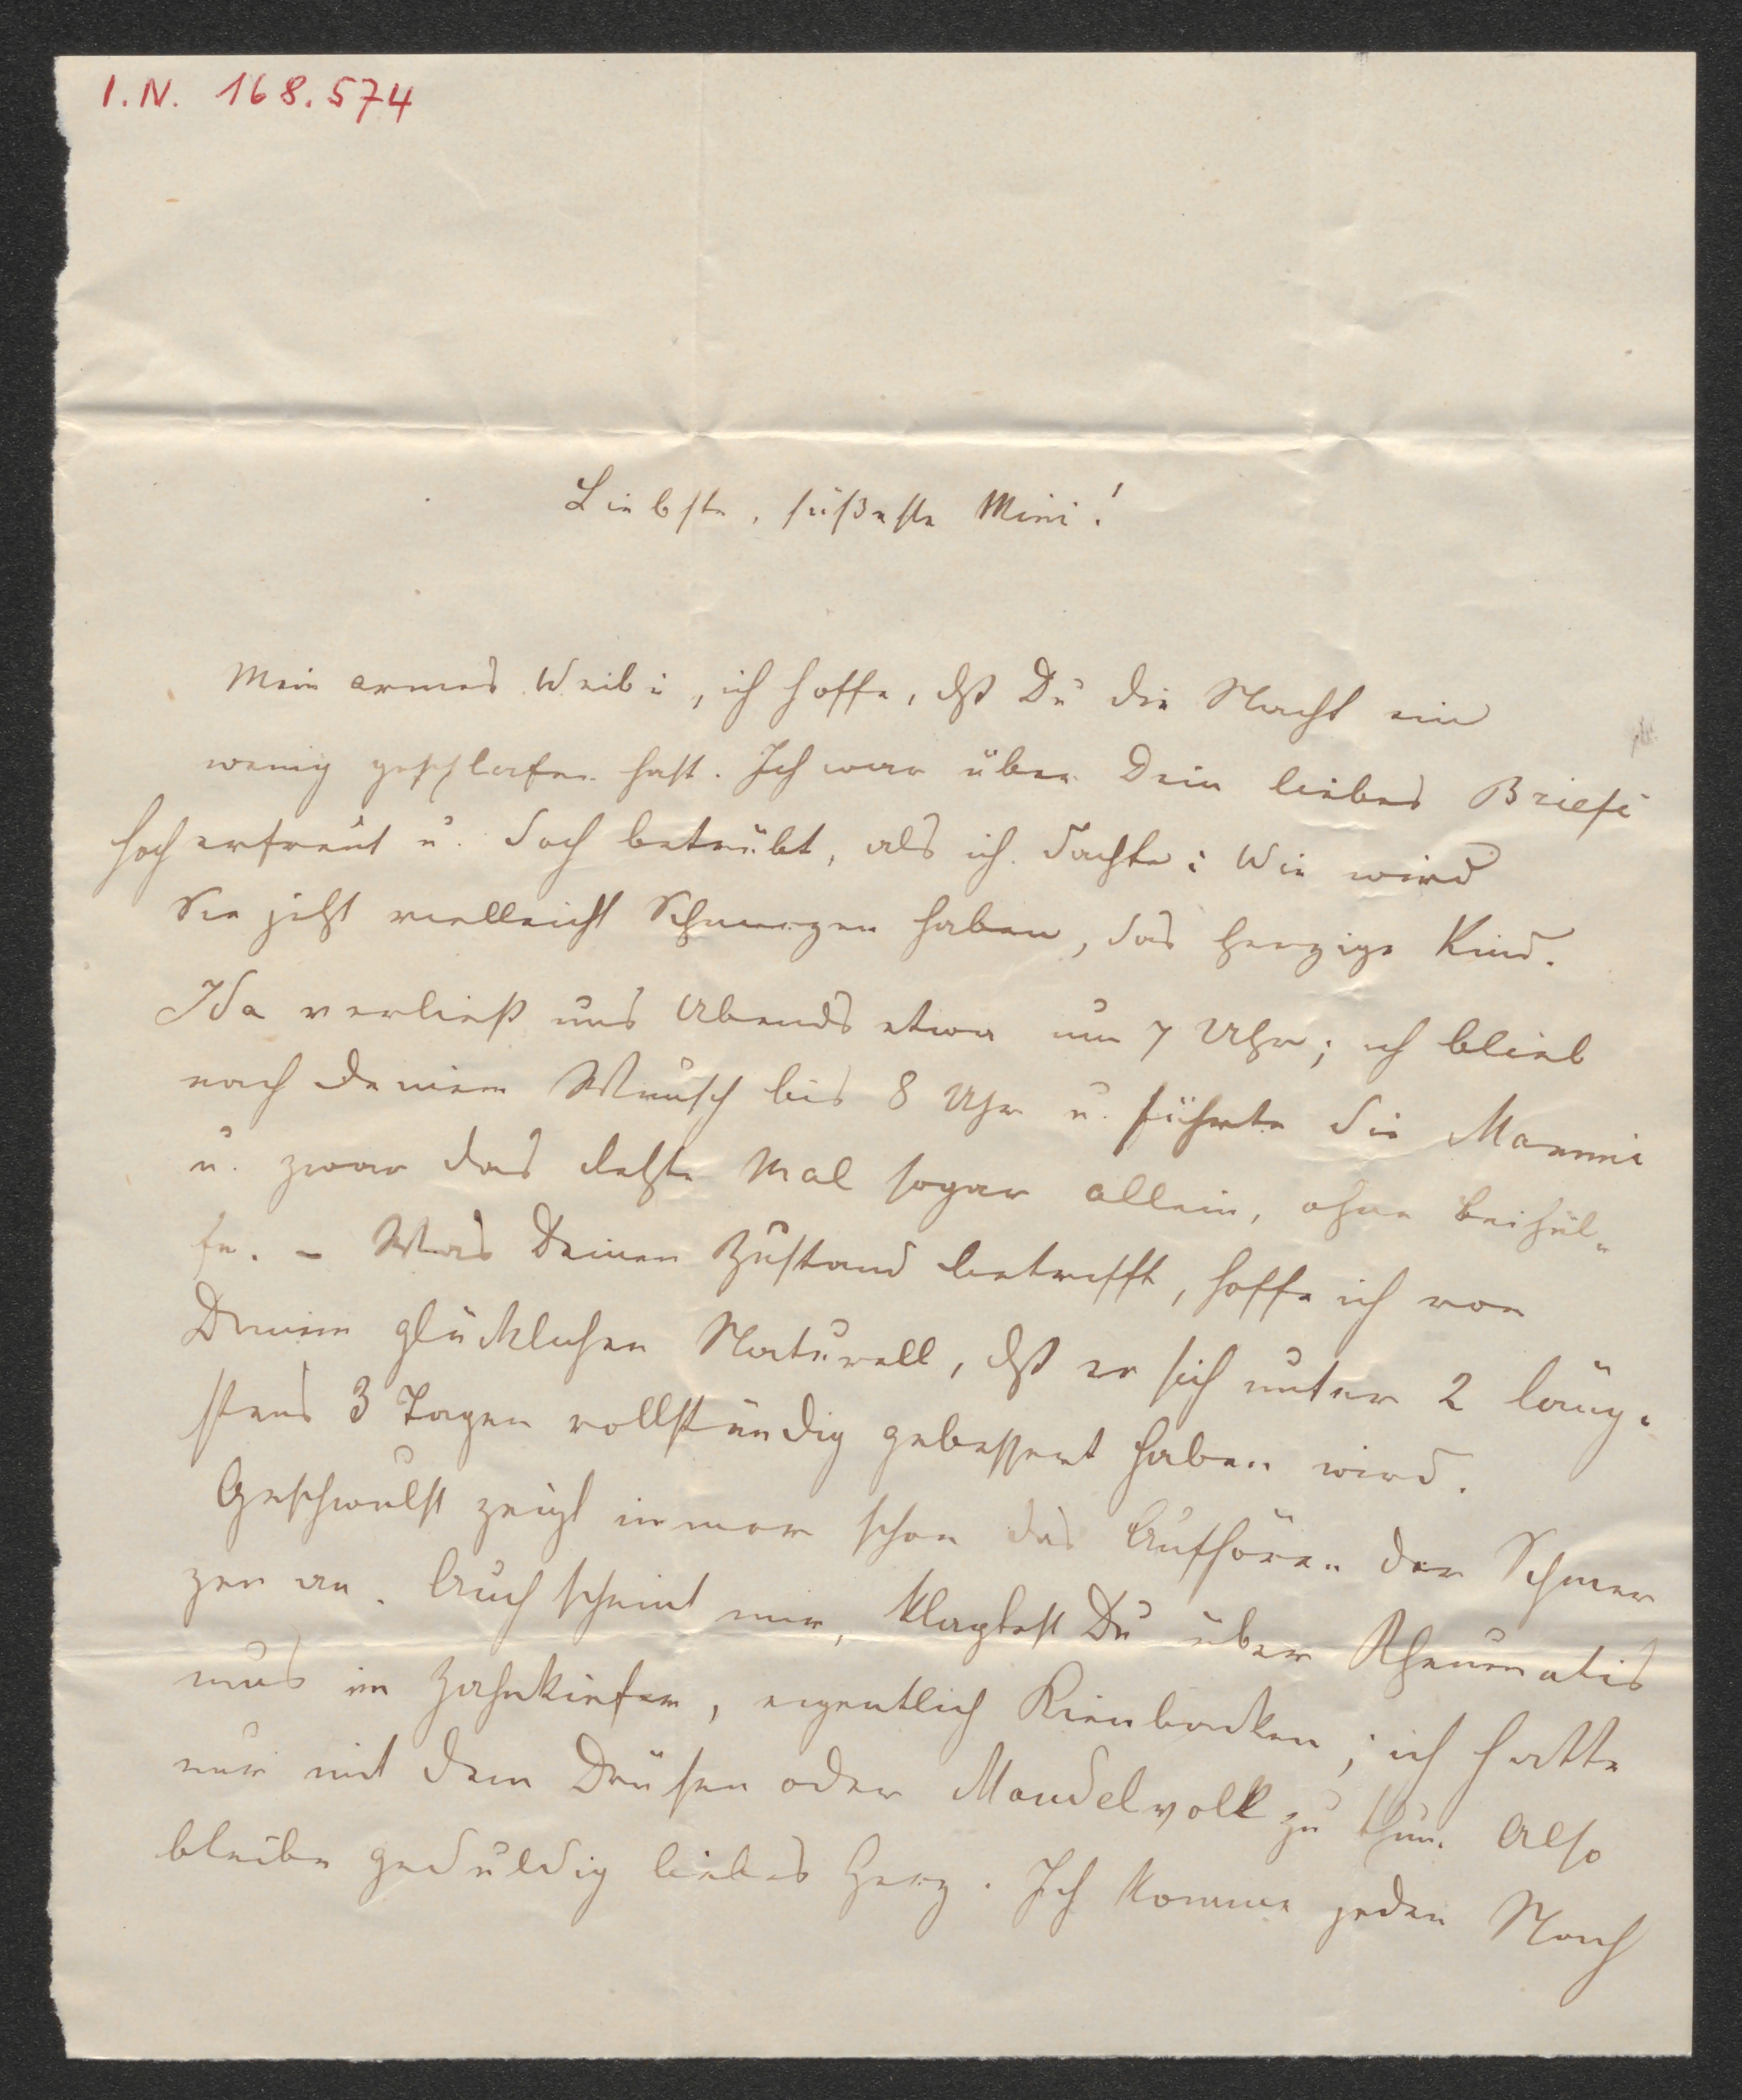 I.N. 168.574
Liebste, süßeste Mini!
Mein armes Weibi, ich hoffe, dß Du die Nacht ein
wenig geschlafen hast. Ich war über Dein liebes Briefi
hocherfreut u. doch betrübt, als ich dachte: Wie wird
Sie jetzt vielleicht Schmerzen haben, das herzige Kind.
Ida verließ uns Abends etwa um 7 Uhr; ich blieb
nach deinem Wunsch bis 8 Uhr u. führte die Mammi
u. zwar das letzte Mal sogar allein, ohne Beihül„
fe. – Was Deinen Zustand betrifft, hoffe ich von
Deinem glücklichen Naturell, dß er sich unter 2 läng„
stens 3 Tagen vollständig gebessert haben wird.
Geschwulst zeigt immer schon das Aufhören der Schmer
zen an. Auch scheint mir, klagtest Du über Rheumatis
mus im Zahnkiefer, eigentlich Kienbacken; ich hatte
nur mit dem Drüsen oder Mandelvolk zu thun. Also
bleibe geduldig liebes Herz. Ich komme jeden Nach